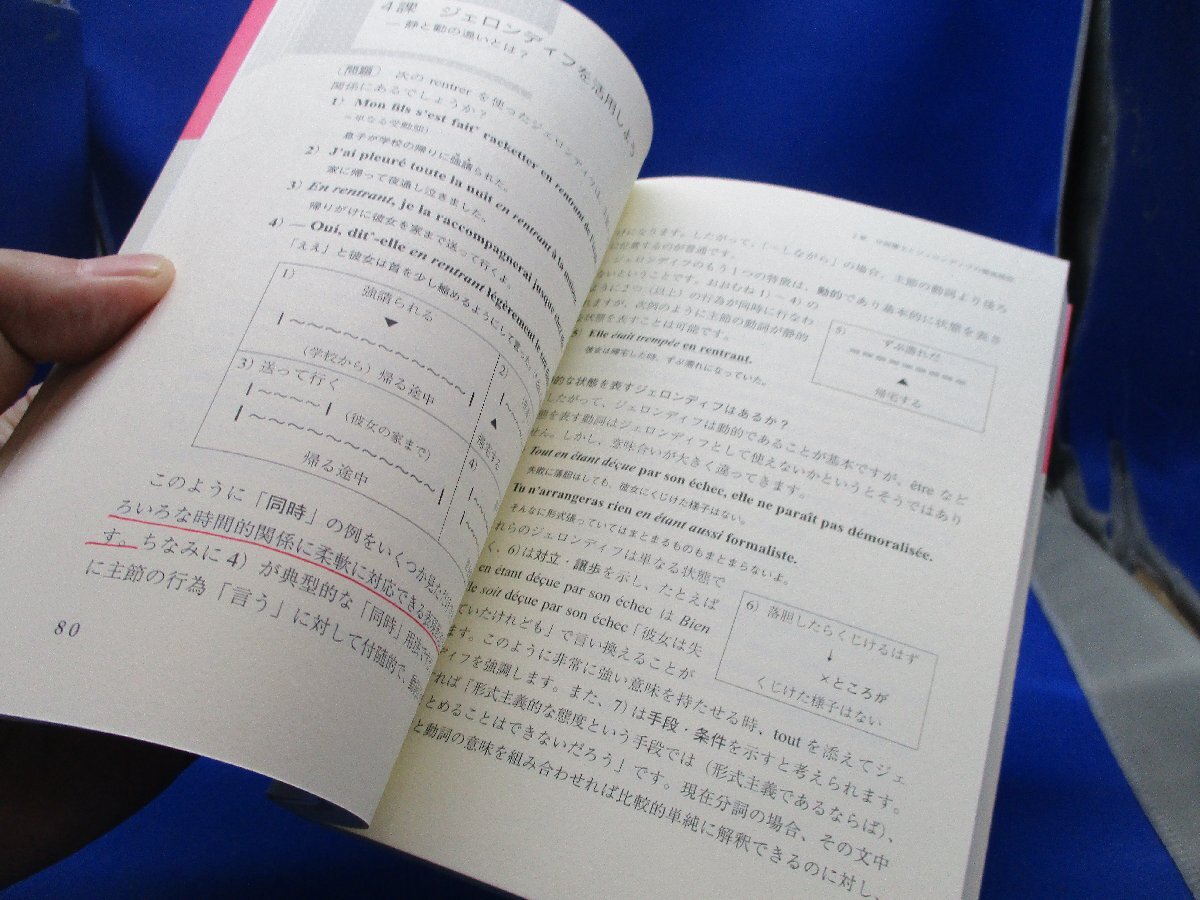 4課 ジェロンディフを活用しよう
― 静と動の違いとは?
(問題) 次の rentrer を使ったジェロンディフは、
関係にあるでしょうか?
1) Mon fils s'est fait' racketter en rentrant de l'
=単なる受動態)
息子が学校の帰りに強請られた。
2) J'ai pleuré toute la nuit en rentrant à la maison.
家に帰って夜通し泣きました。
3) En rentrant, je la raccompagnerai jusque
帰りがけに彼女を家まで送って行くよ。
4) — Oui, dit'-elle en rentrant légèrement le cou.
「ええ」と彼女は首を少し縮めるようにして言った。
1)
強請られる
▼
|~~~~~~~~|
(学校から) 帰る途中
2)
▲
帰宅する
3) 送って行く
|~~~~| (彼女の家まで)
|~~~~~~~~~|
帰る途中
4)
このように「同時」の例をいくつか見た
ろいろな時間的関係に柔軟に対応できる表現
す。ちなみに4) が典型的な「同時」用法で
に主節の行為「言う」に対して付随的で、
80
になります。したがって、「~しながら」の場合、主節の動詞より後ろ
に付置するのが普通です。
ジェロンディフのもう1つの特徴は、動的であり基本的に状態を表さ
ないということです。おおむね 1) ~ 4) の
ように2つ (以上) の行為が同時に行なわ
れますが、次例のように主節の動詞が静的
な状態を表すことは可能です。
5 Elle était trempée en rentrant.
彼女は帰宅した時、ずぶ濡れになっていた。
5)
ずぶ濡れだ
▲
帰宅する
的な状態を表すジェロンディフはあるか?
したがって、ジェロンディフは動的であることが基本ですが、être など
態を表す動詞はジェロンディフとして使えないかというとそうではあり
せん。しかし、意味合いが大きく違ってきます。
Tout en étant déçue par son échec, elle ne paraît pas démoralisée.
失敗に落胆はしても、彼女にくじけた様子はない。
Tu n'arrangeras rien en étant aussi formaliste.
そんなに形式張っていてはまとまるものもまとまらないよ。
れらのジェロンディフは単なる状態で
く、6) は対立・譲歩を示し、たとえば
en étant déçue par son échec は Bien
le soit déçue par son échec「彼女は失
ていたけれども」で言い換えることが
ます。このように非常に強い意味を持たせる時、tout を添えてジェ
ディフを強調します。また、7) は手段・条件を示すと考えられます。
れば「形式主義的な態度という手段では (形式主義であるならば)、
とめることはできないだろう」です。現在分詞の場合、その文中
と動詞の意味を組み合わせれば比較的単純に解釈できるのに対し、
6) 落胆したらくじけるはず
↓
×ところが
くじけた様子はない